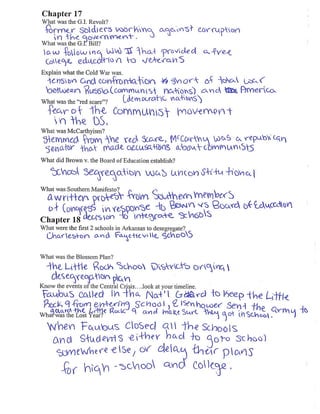 Chapter 17
What was the G.I. Revolt?
former soldiers working against corruption
in the government.
What was the G.I. Bill?
law following WW II that provided a free
college education to veterans
Explain what the Cold War was.
tension and confrontation short of total war
between Russia (communist nations) and America
(democratic nations)
What was the "red scare"?
fear of the communist movement
in the US.
What was McCarthyism?
Stemmed from the red scare, McCarthy was a republican
senator that made accusations about communists
What did Brown v. the Board of Education establish?
School Segregation was unconstitutional
What was Southern Manifesto?
a written protest from Southern members
of Congress in response to Brown vs Board of Education
decision to integrate schools
Chapter 18
What were the first 2 schools in Arkansas to desegregate?
Charleston and Fayetteville Schools
What was the Blossom Plan?
the Little Rock School Districts original
desegregation plan
Know the events of the Central Crisis....look at your timeline.
Faubus called in tha Nat'l Guard to keep the Little
Rock 9 from entering School, Eisenhower sent the army to
guard the Little Rock 9 and make sure they got in School.
What was the Lost Year?
When Faubus closed all the schools
and students either had to go to school
somewhere else, or delay their plans
for high-school and college.